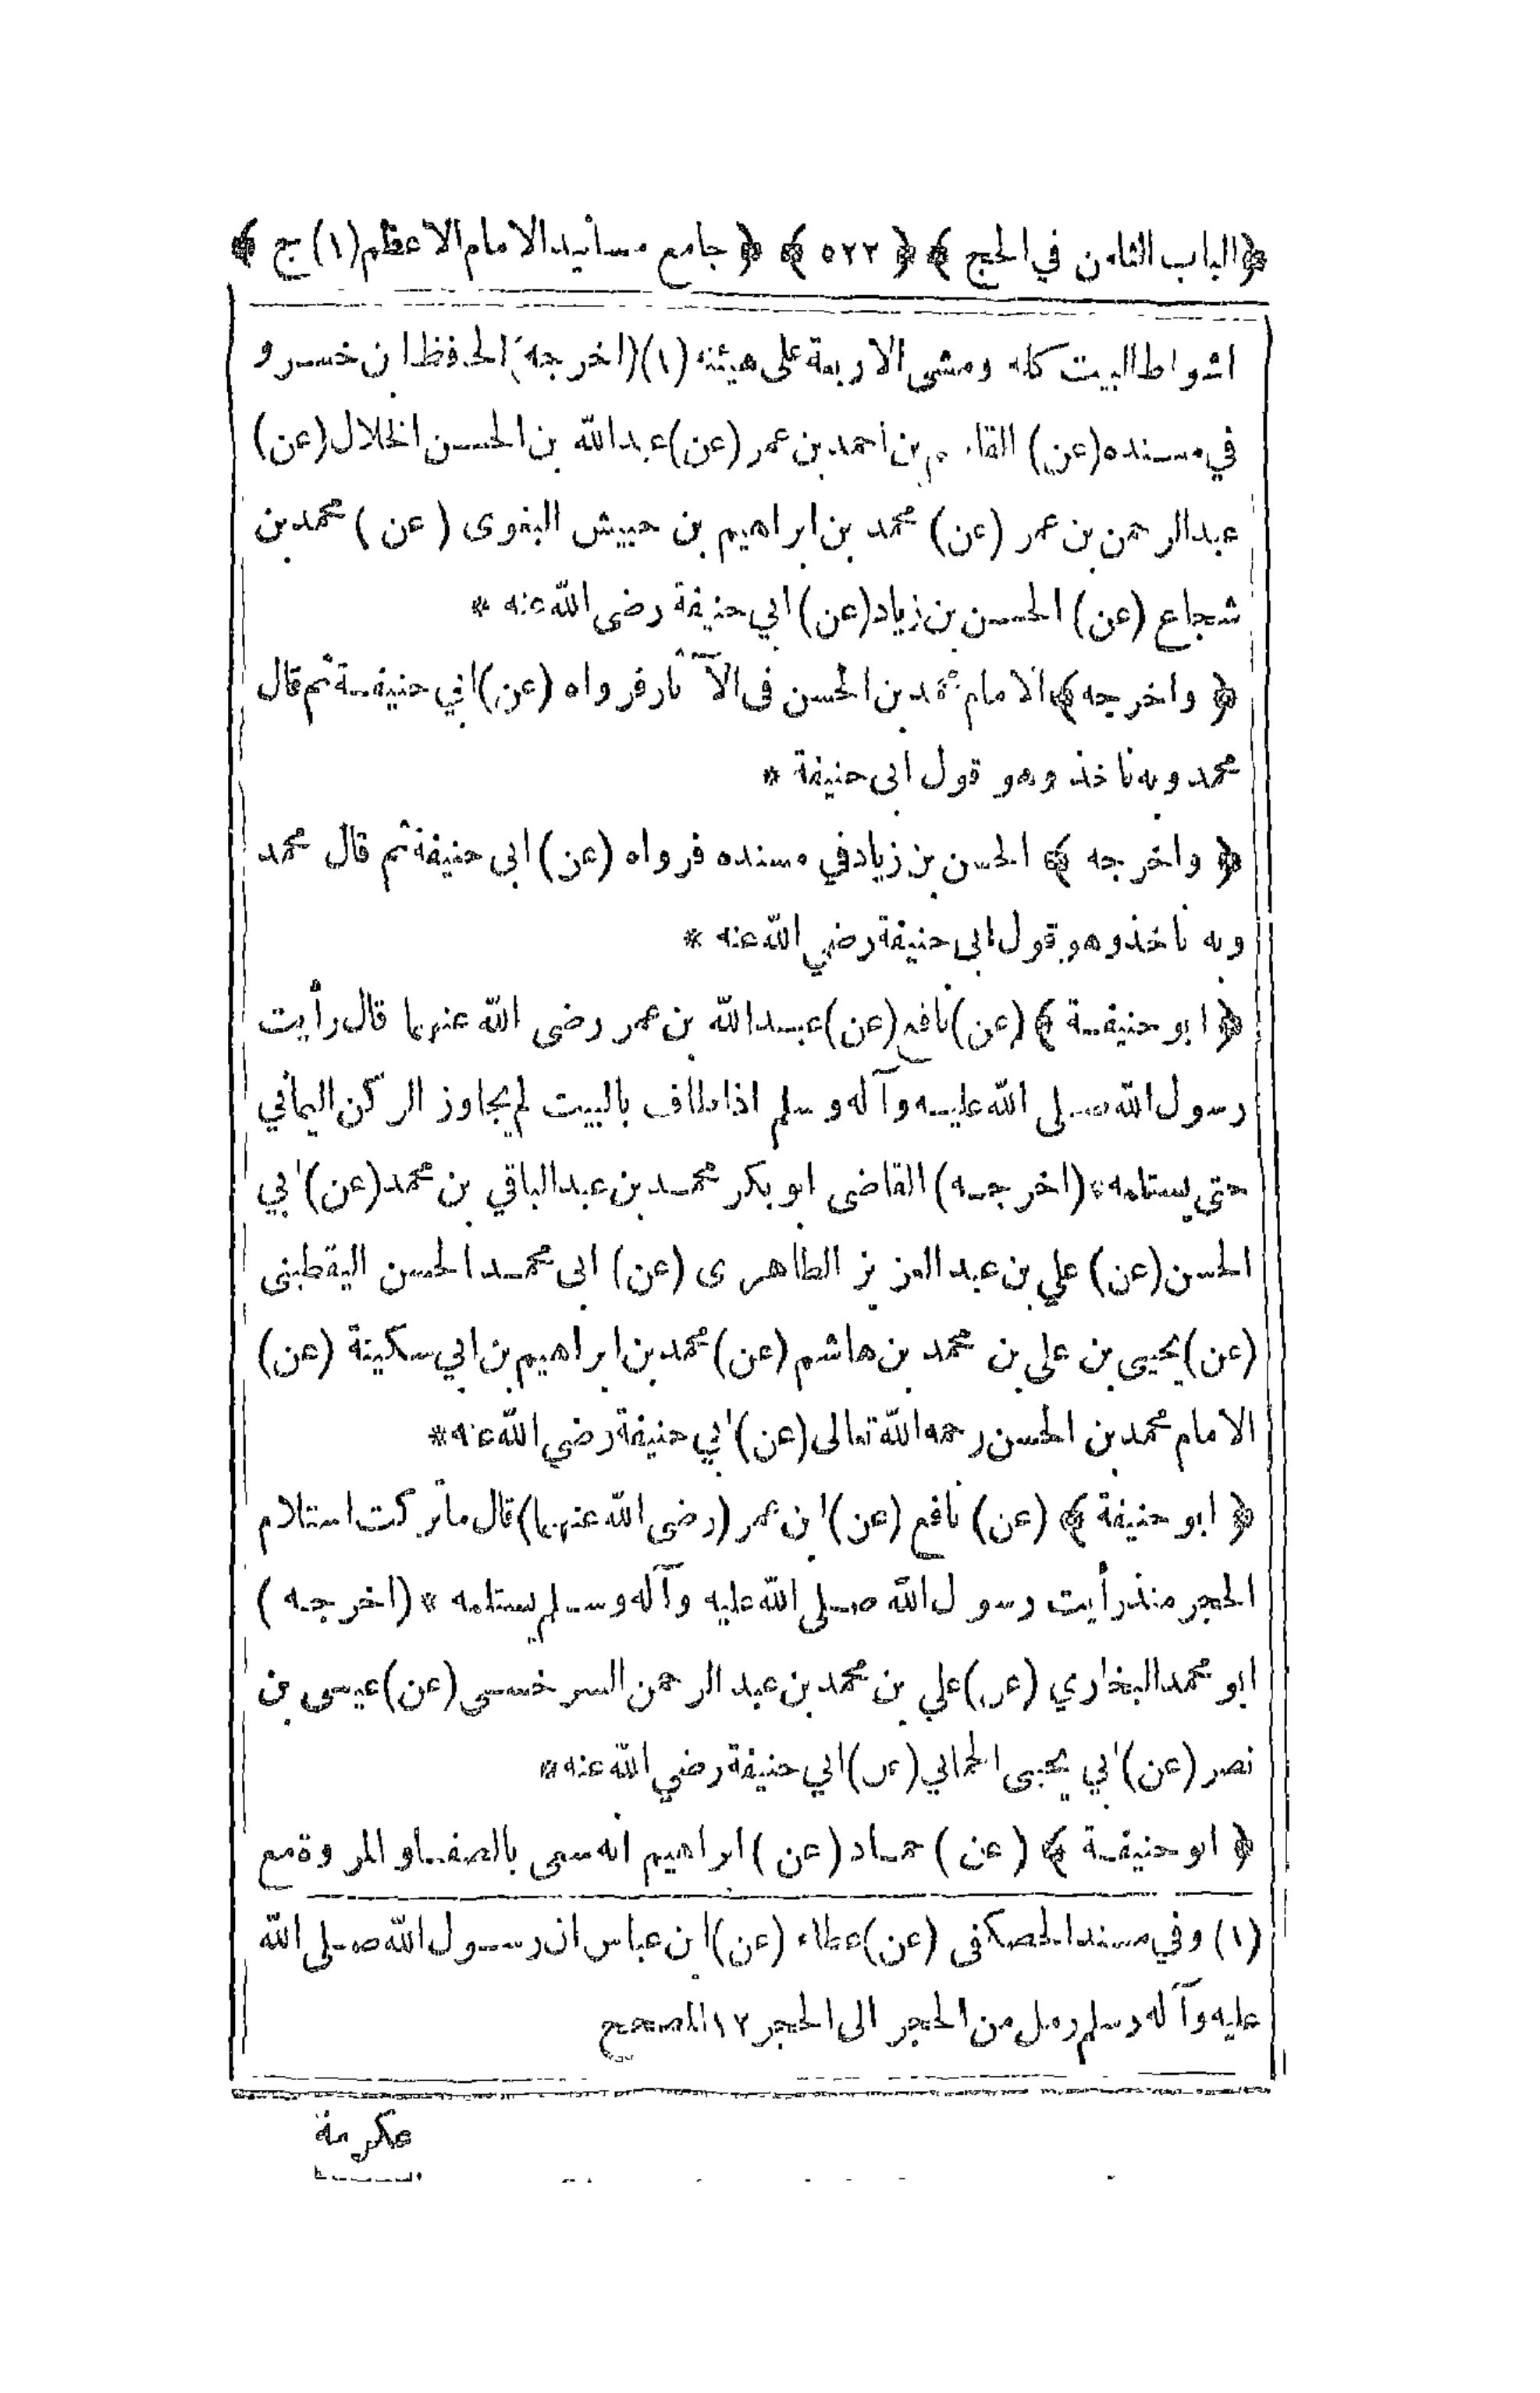 ﴿الباب الثامن في الحج﴾ ﴿٥٢٢﴾ ﴿جامع مسانيد الامام الاعظم(١) ج﴾
اشواط البيت كله ومشى الاربعة على هيئته (١)(اخرجه) الحافظ ابن خسرو
في مسنده (عن) القاسم بن احمد بن عمر (عن) عبد الله بن الحسن الخلال (عن)
عبد الرحمن بن عمر (عن) محمد بن ابراهيم بن حبيش البغوى (عن) محمد بن
شجاع (عن) الحسن بن زياد (عن) ابي حنيفة رضى الله عنه *
﴿واخرجه﴾ الامام محمد بن الحسن فى الآثار فرواه (عن) ابي حنيفة ثم قال
محمد وبه ناخذ وهو قول ابى حنيفة *
﴿واخرجه﴾ الحسن بن زياد في مسنده فرواه (عن) ابى حنيفة ثم قال محمد
وبه ناخذ وهو قول ابى حنيفة رضي الله عنه *
﴿ابو حنيفة﴾ (عن) نافع (عن) عبد الله بن عمر رضى الله عنهما قال رأيت
رسول الله صلى الله عليه وآله وسلم اذا طاف بالبيت لم يجاوز الركن اليماني
حتى يستلمه * (اخرجه) القاضى ابو بكر محمد بن عبد الباقي بن محمد (عن) ابي
الحسن (عن) علي بن عبد العزيز الطاهرى (عن) ابى محمد الحسن اليقطينى
(عن) يحيى بن على بن محمد بن هاشم (عن) محمد بن ابراهيم بن ابي سكينة (عن)
الامام محمد بن الحسن رحمه الله تعالى (عن) ابي حنيفة رضي الله عنه *
﴿ابو حنيفة﴾ (عن) نافع (عن) ابن عمر (رضى الله عنهما) قال ما تركت استلام
الحجر منذ رأيت رسول الله صلى الله عليه وآله وسلم يستلمه * (اخرجه)
ابو محمد البخاري (عن) علي بن محمد بن عبد الرحمن السرخسى (عن) عيسى بن
نصر (عن) ابي يحيى الحماني (عن) ابي حنيفة رضي الله عنه *
﴿ابو حنيفة﴾ (عن) حماد (عن) ابراهيم انه سعى بالصفا والمروة مع
(١) وفي مسند الحصكفى (عن) عطاء (عن) ابن عباس ان رسول الله صلى الله
عليه وآله وسلم رمل من الحجر الى الحجر ١٢ المصحح
عكرمة